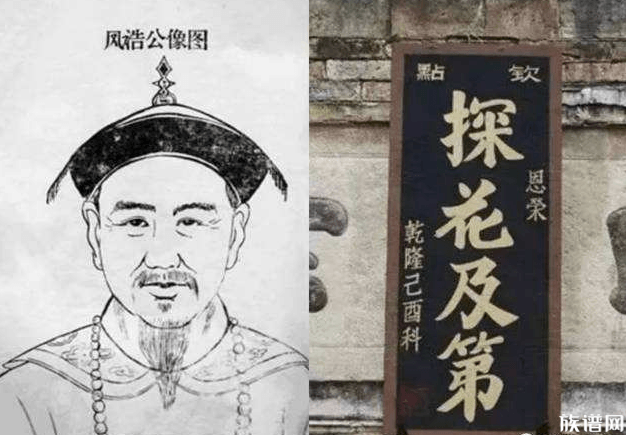 风浩公像图
钦點
恩荣
探花及第
乾隆己酉科
族谱网